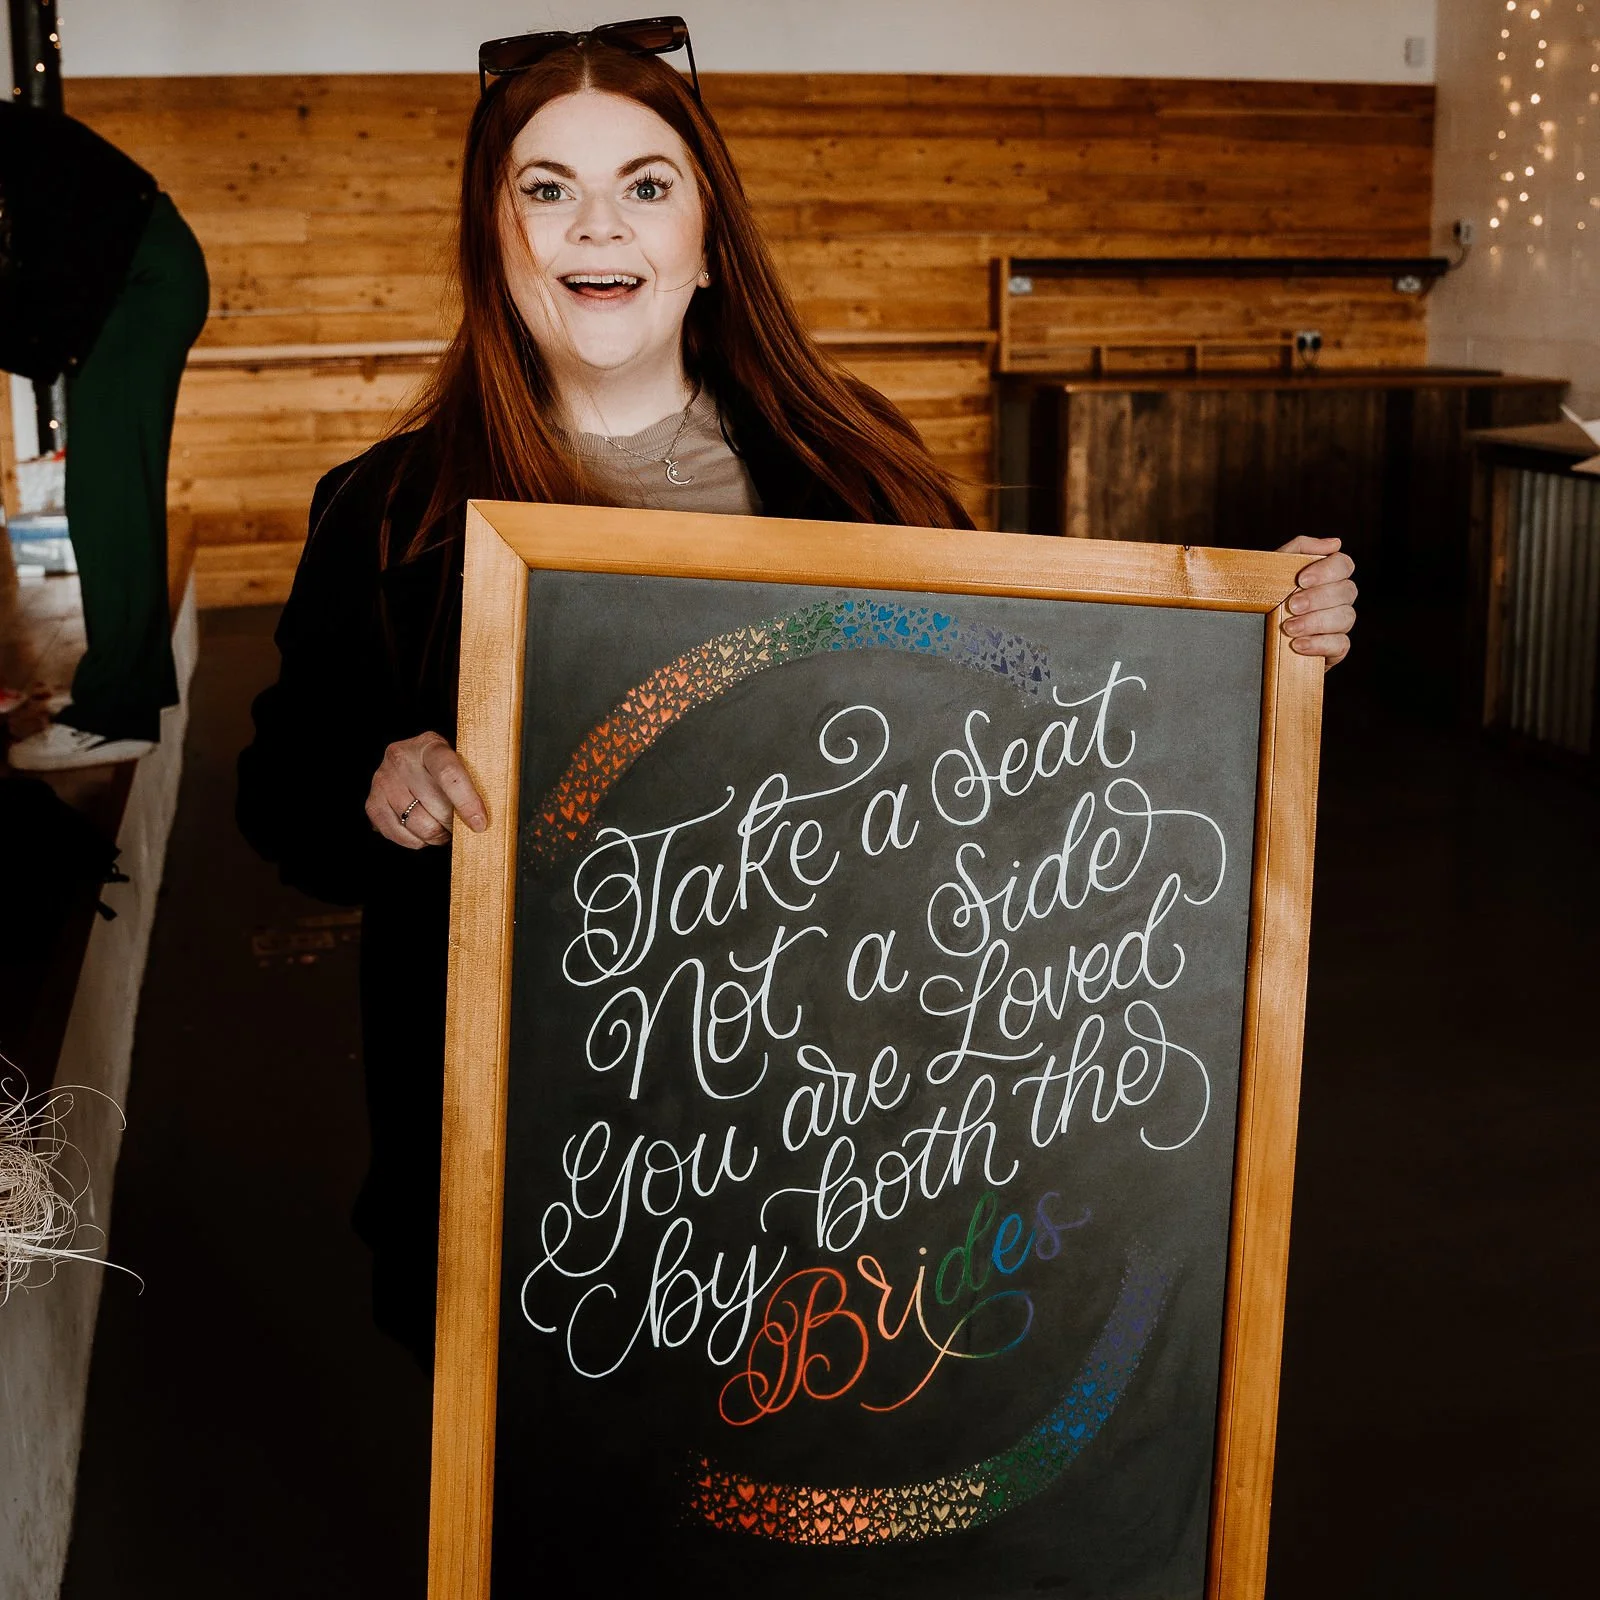 Take a Seat
Not a Side
You are Loved
by both the
Brides